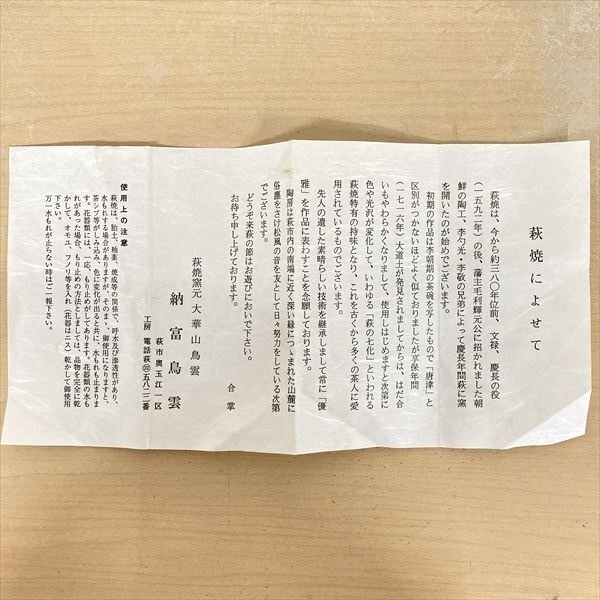 萩焼によせて
萩焼は、今から約三八〇年位前、文禄、慶長の役
（一五九二年）の後、藩主毛利輝元公に招かれました朝
鮮の陶工、李勺光・李敬の兄弟によって慶長年間萩に窯
を開いたのが始めでございます。
初期の作品は李朝期の茶碗を写したもので「唐津」と
区別がつかないほどよく似ておりましたが享保年間
（一七一六年）大道土が発見されましてからは、はだ合
いもやわらかくなりまして、使用しはじめますと次第に
色や光沢が変化して、いわゆる「萩の七化」といわれる
萩焼特有の持味となり、これを古くから多くの茶人に愛
用されているものでございます。
先人の遺した素晴らしい技術を継承しまして常に「優
雅」を作品に表わすことを念願しております。
陶房は萩市内の南端に近く深い緑につゝまれた山麓に
俗塵をさけ松風の音を友として日々努力をしている次第
でございます。
どうぞ来萩の節はお遊びにおいで下さい。
お待ち申し上げております。
合掌
萩焼窯元 大華山鳥雲
納富鳥雲
萩市奥玉江一区
工房 電話萩㉒五八二二番
使用上の注意
萩焼は、胎土、釉薬、焼成等の関係で、呼水及び滲透性があり、
水もれする場合がありますが、そのまゝ、御使用になりますと、
茶シブ等がしみ込み、色に変化が出ると共に、水もれも止まりま
す。花器類には、一応、もり止めがしてあります。花器類の水も
れがあった場合、もり止めの方法としましては、品物を完全に乾
かして、オモユ、フノリ等を入れ（花器はニス）乾かして御使用
下さい。
万一水もれが止らない時はご一報下さい。